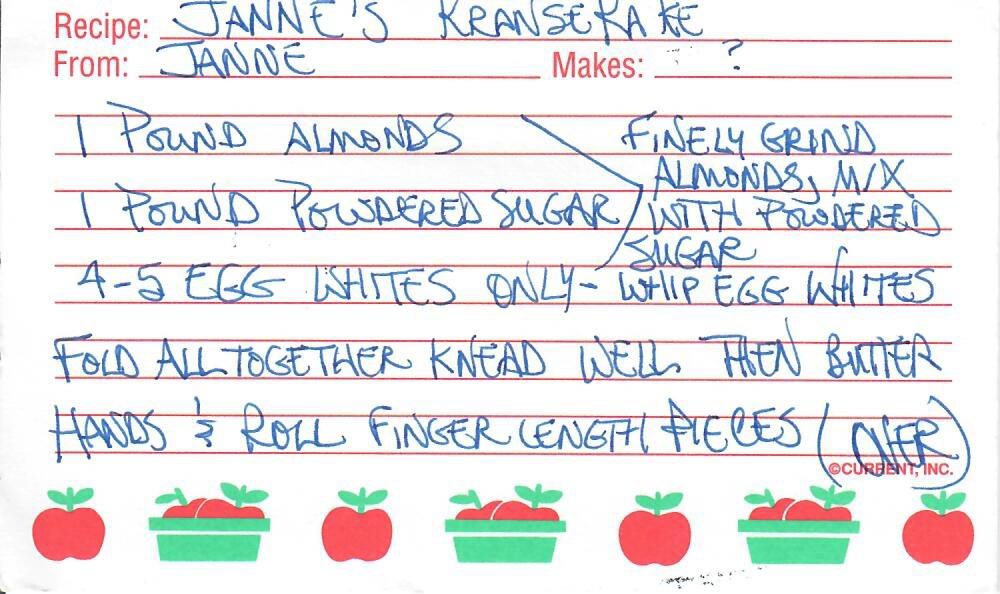 Recipe: JANNE'S KRANSEKAKE
From: JANNE Makes: ?
1 POUND ALMONDS
FINELY GRIND
ALMONDS, MIX
1 POUND POWDERED SUGAR
WITH POWDERED
SUGAR
4-5 EGG WHITES ONLY - WHIP EGG WHITES
FOLD ALL TOGETHER KNEAD WELL THEN BUTTER
HANDS & ROLL FINGER LENGTH PIECES (OVER)
©CURRENT, INC.